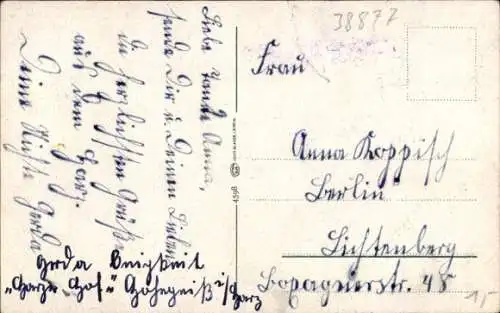 38877
Liebe Tante Anna,
sende Dir u Deinen Lieben
die herzlichsten Grüße
aus dem Harz.
Deine Nichte Gerda
Gerda
"Harzer Hof" Hohegeiß i/Harz
4598
Frau
Anna Koppisch
Berlin
Lichtenberg
Boxhagenerstr. 48
1,-